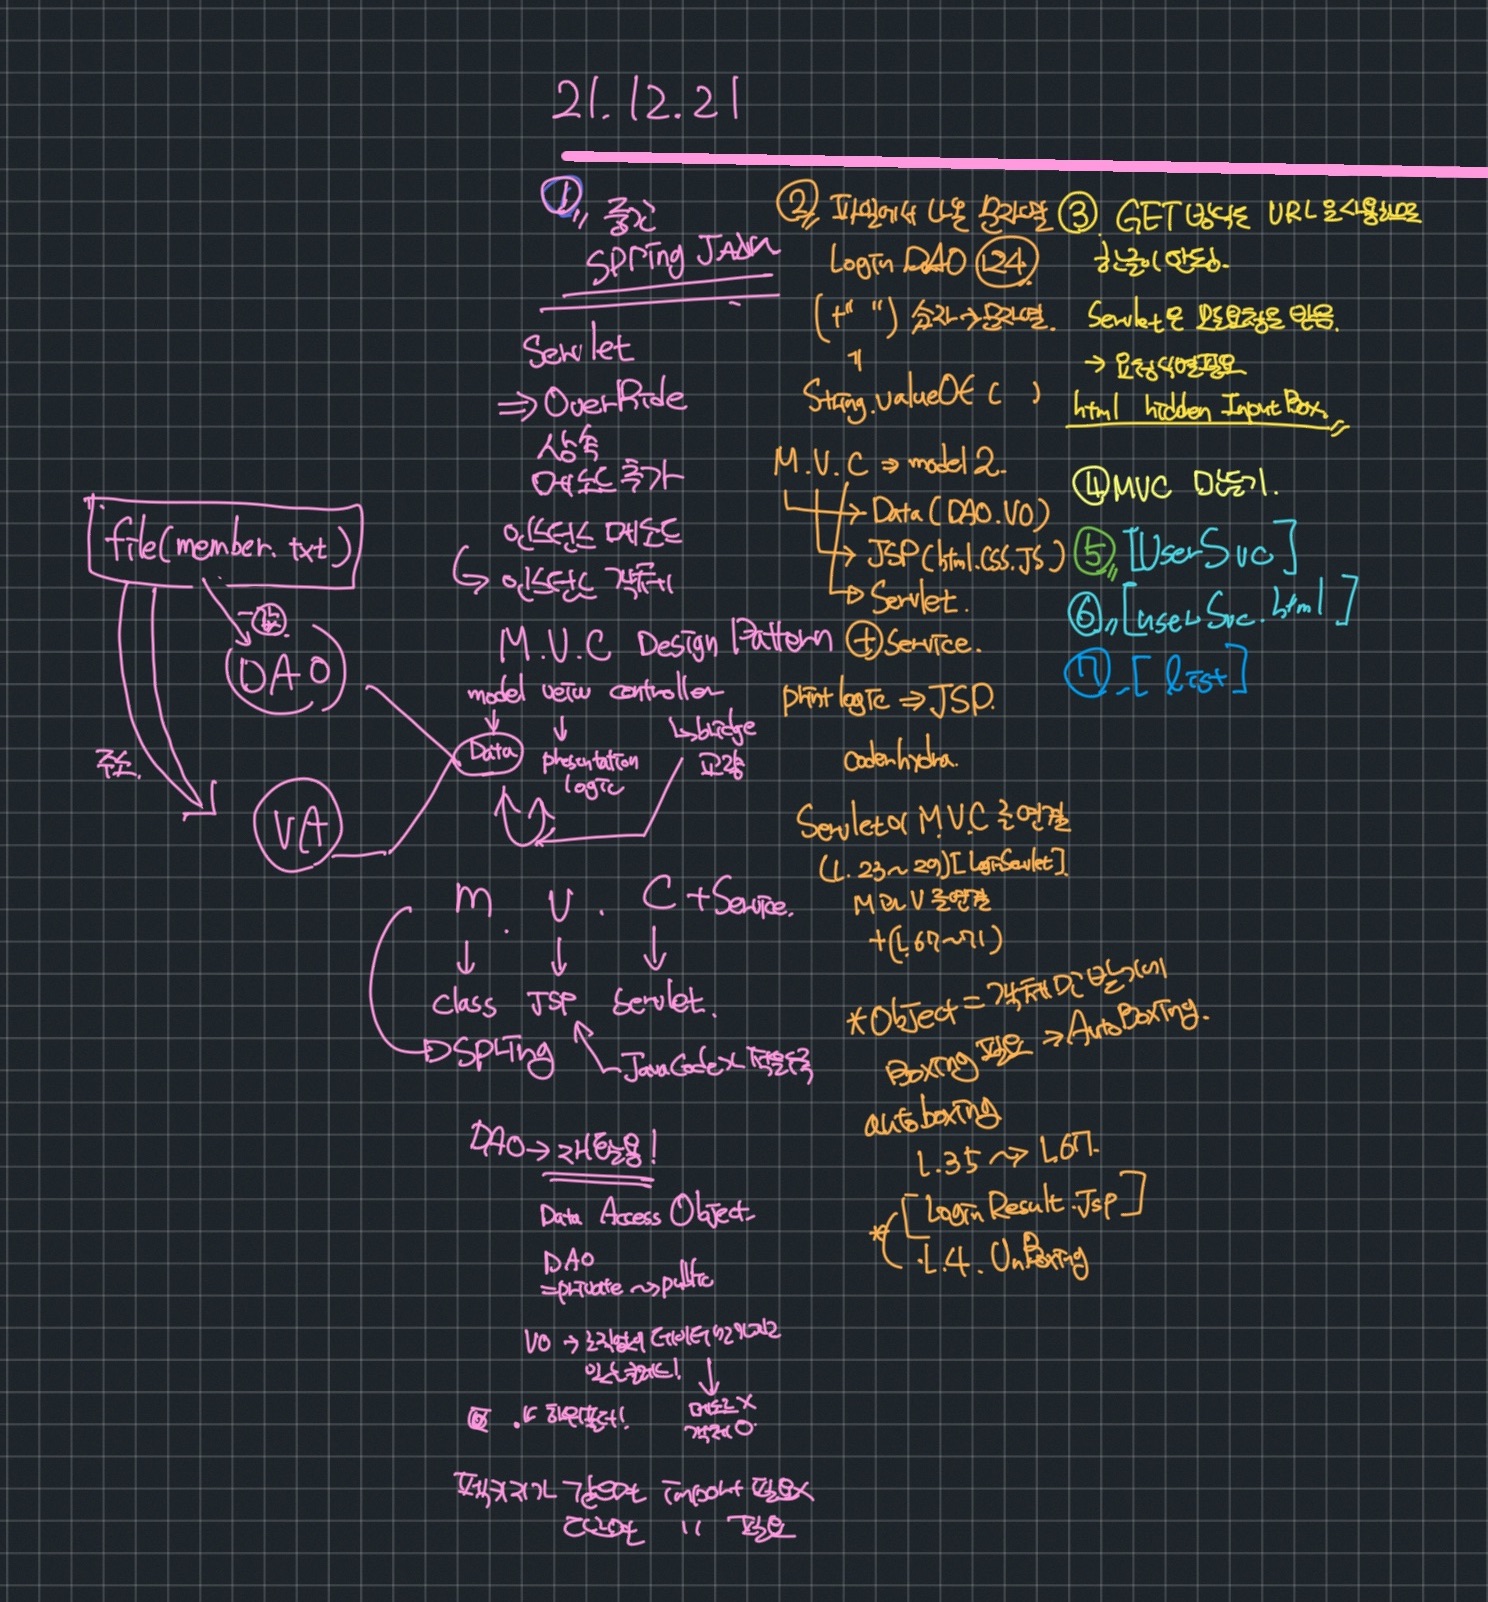 21.12.21
①
Spring JAVA
Servlet
⇒ OverRide
상속
메소드 추가
인스턴스 메소드
→ 인스턴스
file(member.txt)
DAO
주소.
VA
M.V.C Design Pattern
model veiw controller
Data
presentation
logic
bridge
교량
M. V. C + Service.
Class JSP Servlet.
Spring
JavaCode X
DAO → 재활용!
Data Access Object
DAO
= private ~> public
VO →
메소드 X
객체 O.
패키지가 같으면 import 필요X
다르면 〃 필요
② 파일에서 나온 문자열
Login DAO L24
(+" ") 숫자→문자열.
String.valueOf ( )
M.V.C ⇒ model 2.
Data (DAO.VO)
JSP (html.CSS.JS)
Servlet.
+ Service.
print logic ⇒ JSP.
codenhydra.
Servlet이 M.V.C 를 연결
(L.23~29) [LoginServlet]
M과 V를 연결
+(L.67~71)
*Object = 객체만
Boxing 필요 → AutoBoxing.
autoboxing
L.35 ~> L67.
[Login Result.Jsp]
* L.4. UnBoxing
③ GET 방식은 URL을 사용하므로
한글이 안됨.
Servlet은 모든요청을 받음.
→ 요청식별필요
html hidden InputBox
④ MVC 만들기.
⑤ [UserSvc]
⑥ [userSvc.html]
⑦ [list]